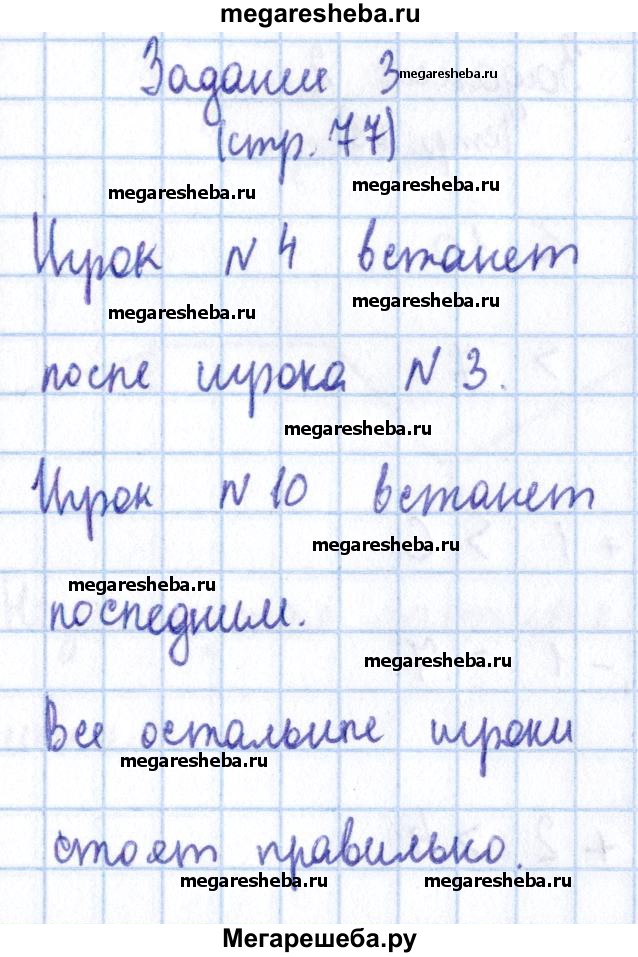 megaresheba.ru
Задание 3
megaresheba.ru
(стр. 77)
megaresheba.ru
megaresheba.ru
Игрок N 4 встанет
megaresheba.ru
megaresheba.ru
после игрока N 3.
megaresheba.ru
Игрок N 10 встанет
megaresheba.ru
megaresheba.ru
последним.
megaresheba.ru
Все остальные игроки
megaresheba.ru
стоят правильно.
megaresheba.ru
megaresheba.ru
Мегарешеба.ру